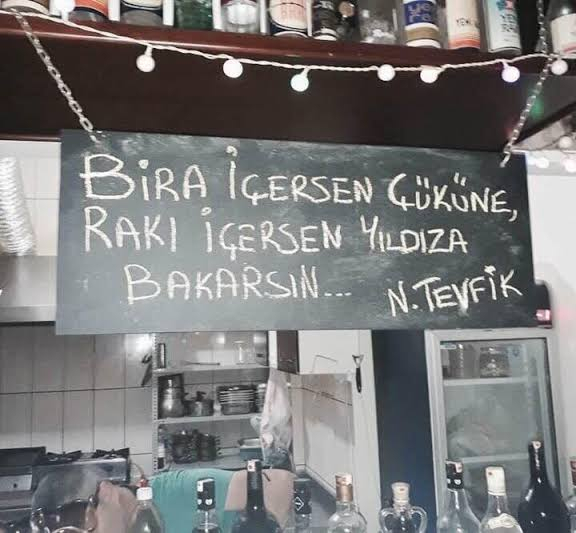 BİRA İÇERSEN ÇÜKÜNE,
RAKI İÇERSEN YILDIZA
BAKARSIN...
N.TEVFİK